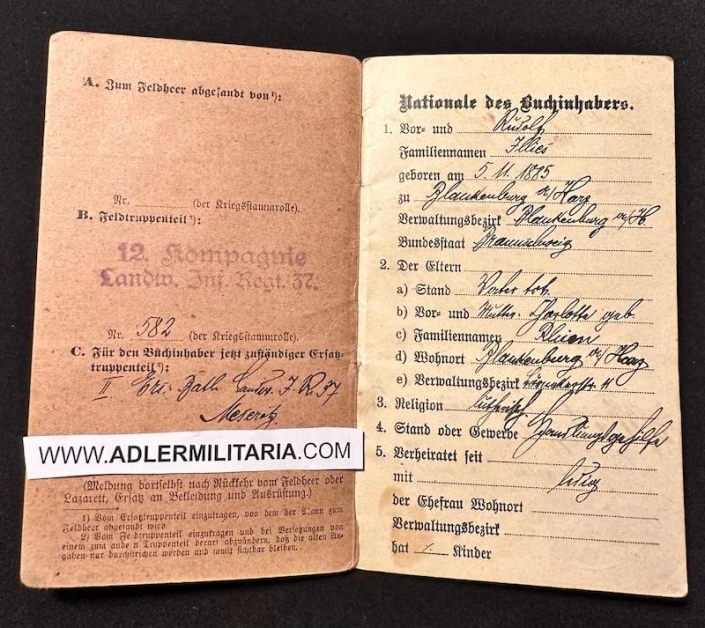 A. Zum Feldheer abgesandt von¹):
Nr. (der Kriegsstammrolle).
B. Feldtruppenteil²):
12. Kompagnie
Landw. Inf. Regt. 37.
Nr. 582 (der Kriegsstammrolle).
C. Für den Buchinhaber jetzt zuständiger Ersatz-
truppenteil²):
II Ers. Batl. Landw. I. R. 37
Meseritz
WWW.ADLERMILITARIA.COM
(Meldung dortselbst nach Rückkehr vom Feldheer oder
Lazarett, Ersatz an Bekleidung und Ausrüstung.)
1) Vom Ersatztruppenteil einzutragen, von dem der Mann zum
Feldheer abgesandt wird.
2) Vom Feldtruppenteil einzutragen und bei Versetzungen von
einem zum anderen Truppenteil derart abzuändern, daß die alten An-
gaben nur durchstrichen werden und somit sichtbar bleiben.
Nationale des Buchinhabers.
1. Vor- und Rudolf
Familiennamen Illies
geboren am 5. 11. 1885
zu Blankenburg a/Harz
Verwaltungsbezirk Blankenburg a/H
Bundesstaat Braunschweig
2. Der Eltern
a) Stand Vater tot.
b) Vor- und Mutter. Charlotte geb.
c) Familiennamen
d) Wohnort Blankenburg a/Harz
e) Verwaltungsbezirk 11
3. Religion luthrisch
4. Stand oder Gewerbe Handlungsgehilfe
5. Verheiratet seit
mit ledig
der Ehefrau Wohnort
Verwaltungsbezirk
hat Kinder